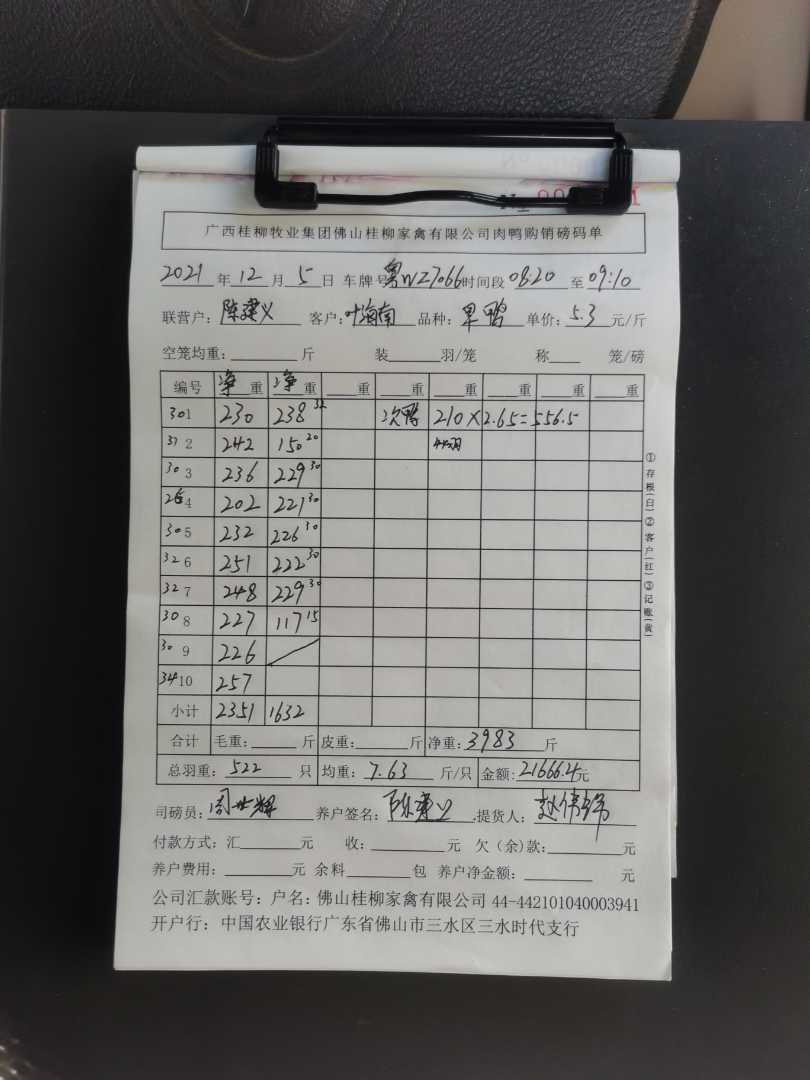 广西桂柳牧业集团佛山桂柳家禽有限公司肉鸭购销磅码单
2021 年 12 月 5 日 车牌号 粤WZ7066 时间段 08:20 至 09:10
联营户: 陈建义 客户: 叶海南 品种: 单鸭 单价: 5.3 元/斤
空笼均重: 斤 装 羽/笼 称 笼/磅
编号 净重 净重 重 重 重 重 重 重
30 1 230 238 32 次鸭 210×2.65=556.5
31 2 242 150 20 44羽
30 3 236 229 30
26 4 202 221 30
30 5 232 226 30
32 6 251 222 30
32 7 248 229 30
30 8 227 117 15
30 9 226
34 10 257
小计 2351 1632
合计 毛重: 斤 皮重: 斤 净重: 3983 斤
总羽重: 522 只 均重: 7.63 斤/只 金额: 21666.4元
司磅员: 周世辉 养户签名: 陈建义 提货人:
付款方式: 汇 元 收: 元 欠(余)款: 元
养户费用: 元 余料 包 养户净金额: 元
公司汇款账号: 户名: 佛山桂柳家禽有限公司 44-442101040003941
开户行: 中国农业银行广东省佛山市三水区三水时代支行
①存根(白)②客户(红)③记账(黄)